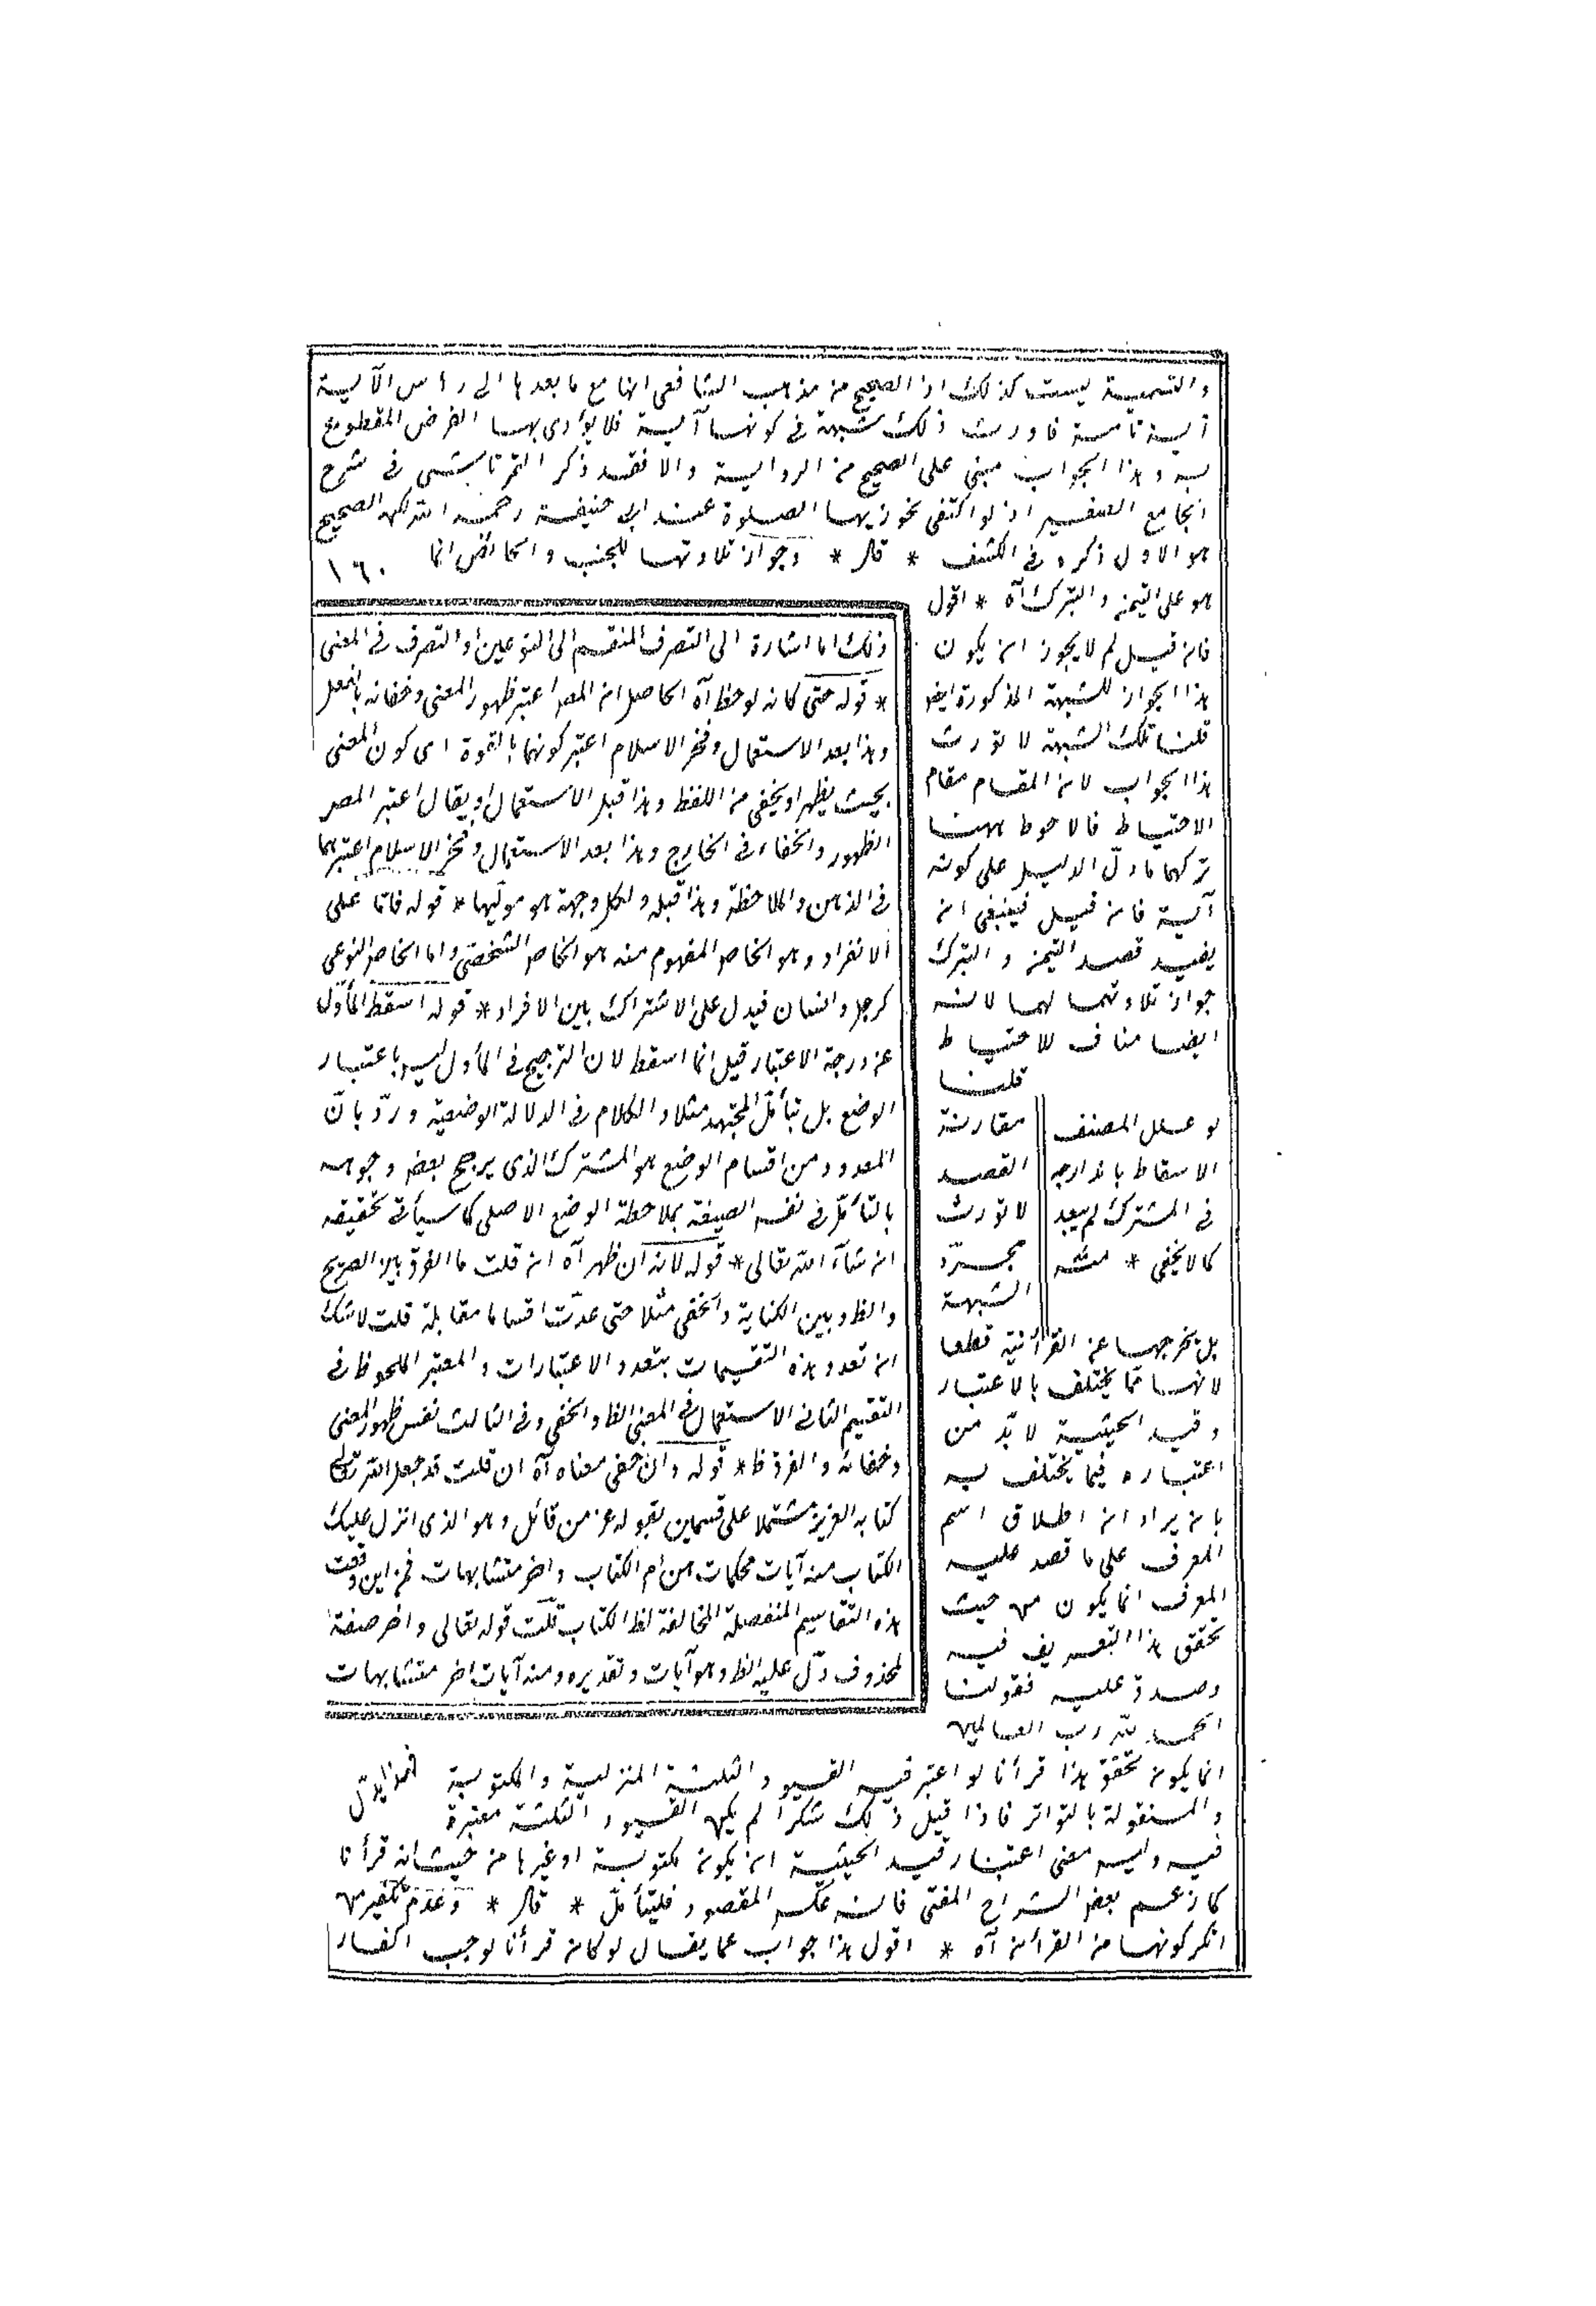 والتسمية ليست كذلك اذ الصحيح من مذهب الشافعى انها مع ما بعدها الى رأس الآية
آية تامة فاورث ذلك شبهة فى كونها آية فلا يؤدى بها الفرض المقطوع
به وهذا الجواب مبنى على الصحيح من الرواية والا فقد ذكر التمرتاشى فى شرح
الجامع الصغير انه لو اكتفى بها الصلوة عند ابى حنيفة رحمه الله لكن الصحيح
هو الاول ذكره فى الكشف * قال * وجواز تلاوتها للجنب والحائض انما
١٦٠
هو على التيمن والتبرك آه * اقول
فان قيل لم لا يجوز ان يكون
هذا الجواز للشبهة المذكورة ايضا
قلنا تلك الشبهة لا تورث
هذا الجواب لان المقام مقام
الاحتياط فالاحوط ههنا
تركهما ما دلّ الدليل على كونه
آية فان قيل فينبغى ان
يفيد قصد التيمن والتبرك
جواز تلاوتهما لهما لانه
ايضا مناف للاحتياط
قلنا
مقارنة
القصد
لا تورث
مجرّد
الشبهة
بل تخرجها عن القرأنية قطعا
لانها مما يختلف بالاعتبار
وقيد الحيثية لا بدّ من
اعتباره فيما يختلف به
بان يراد ان اطلاق اسم
المعرف على ما قصد عليه
المعرف انما يكون من حيث
تحقق هذا التعريف فيه
وصدق عليه فقولنا
الحمد لله رب العالمين
انما يكون تحقق هذا قرأنا لو اعتبر فيه القيود الثلثة المنزلية والمكتوبية
والمنقولة بالتواتر فاذا قيل ذلك شكرا لم يكن القيود الثلثة معتبرة
فيه وليس معنى اعتبار قيد الحيثية ان يكون مكتوبية او غيرها من حيث انه قرأنا
كما زعم بعض الشراح المغنى فانه عكس المقصود فليتأمل * قال * وعدم تكفير من
انكر كونها من القرأن آه * اقول هذا جواب عما يقال لو كان قرأنا لوجب اكفار
لو علل المصنف
الاسقاط باندراجه
فى المشترك لم يبعد
كما لا يخفى * منه
ذلك اما اشارة الى التصرف المنقسم الى النوعين او التصرف فى المعنى
* قوله حتى كانه لوحظ آه الحاصل ان المص اعتبر ظهور المعنى وخفائه بالفعل
وهذا بعد الاستعمال وفخر الاسلام اعتبر كونهما بالقوة اى كون المعنى
بحيث يظهر او يخفى من اللفظ وهذا قبل الاستعمال او يقال اعتبر المص
الظهور والخفاء فى الخارج وهذا بعد الاستعمال وفخر الاسلام اعتبرهما
فى الذهن والملاحظة وهذا قبله ولكل وجهة هو موليها * قوله فامّا على
الانفراد وهو الخاص المفهوم منه هو الخاص الشخصى واما الخاص النوعى
كرجل وانسان فيدل على الاشتراك بين الافراد * قوله اسقط المأوّل
عن درجة الاعتبار قيل انما اسقط لان الترجيح فى المأول ليس باعتبار
الوضع بل بتأمّل المجتهد مثلا والكلام فى الدلالة الوضعية وردّ بانّ
المعدود من اقسام الوضع هو المشترك الذى يرجح بعض وجوهه
بالتأمّل فى نفس الصيغة بملاحظة الوضع الاصلى كما سيأتى تحقيقه
ان شاء الله تعالى * قوله لانه ان ظهر آه ان قلت ما الفرق بين الصريح
والظ وبين الكناية والخفى مثلا حتى عدّت اقساما مقابلة قلت لا شك
ان تعدد هذه التقسيمات بتعدد الاعتبارات والمعتبر الملحوظ فى
التقسيم الثانى الاستعمال فى المعنى الظ والخفى وفى الثالث نفس ظهور المعنى
وخفائه والفرق ظ * قوله وان خفى معناه آه ان قلت قد جعل الله تعالى
كتابه العزيز مشتملا على قسمين بقوله عز من قائل وهو الذى انزل عليك
الكتاب منه آيات محكمات هن ام الكتاب واخر متشابهات فمن اين وقعت
هذه التقاسيم المنفصلة المخالفة لظ الكتاب قلت قوله تعالى واخر صفة
لمحذوف دلّ عليه الظ وهو آيات وتقديره ومنه آيات اخر متشابهات
فهذا يدلّ